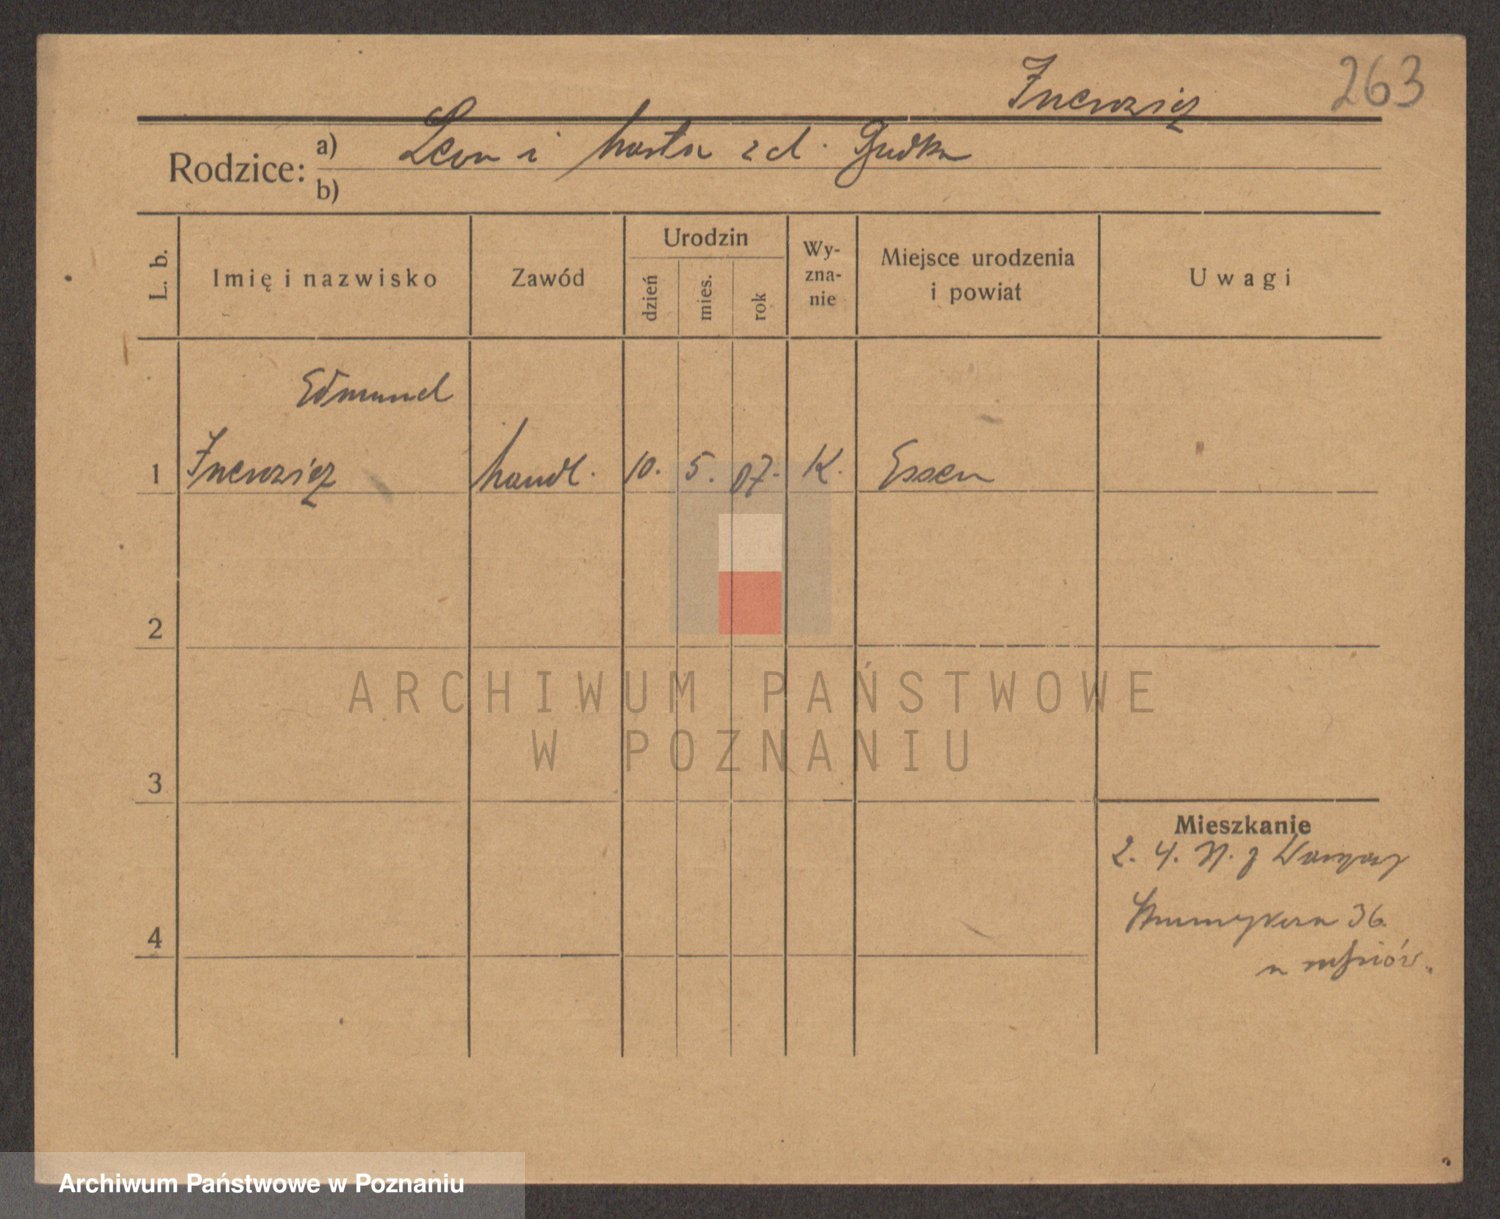 263
Rodzice: a) Leon i Marta z d. Gudka
b)
L. b.
Imię i nazwisko
Zawód
Urodzin
dzień
mies.
rok
Wy-
zna-
nie
Miejsce urodzenia
i powiat
Uwagi
Edmund
1 handl. 10. 5. 07. K. Essen
2
3
4
Mieszkanie
2. 4.
36
ARCHIWUM PAŃSTWOWE
W POZNANIU
Archiwum Państwowe w Poznaniu